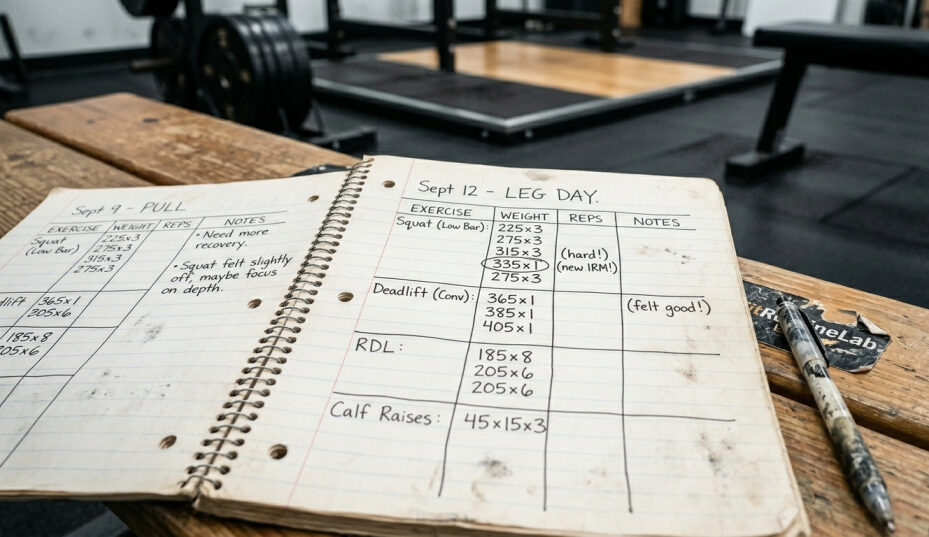 Sept 9 - PULL
EXERCISE WEIGHT REPS NOTES
Squat (Low Bar)
225x3
275x3
315x3
275x3
• Need more recovery.
• Squat felt slightly off, maybe focus on depth.
365x1
205x6
185x8
205x6
Sept 12 - LEG DAY.
EXERCISE WEIGHT REPS NOTES
Squat (Low Bar):
225x3
275x3
315x3 (hard!)
335x1 (new 1RM!)
275x3
Deadlift (Conv):
365x1 (felt good!)
385x1
405x1
RDL:
185x8
205x6
205x6
Calf Raises: 45x15x3
neLab